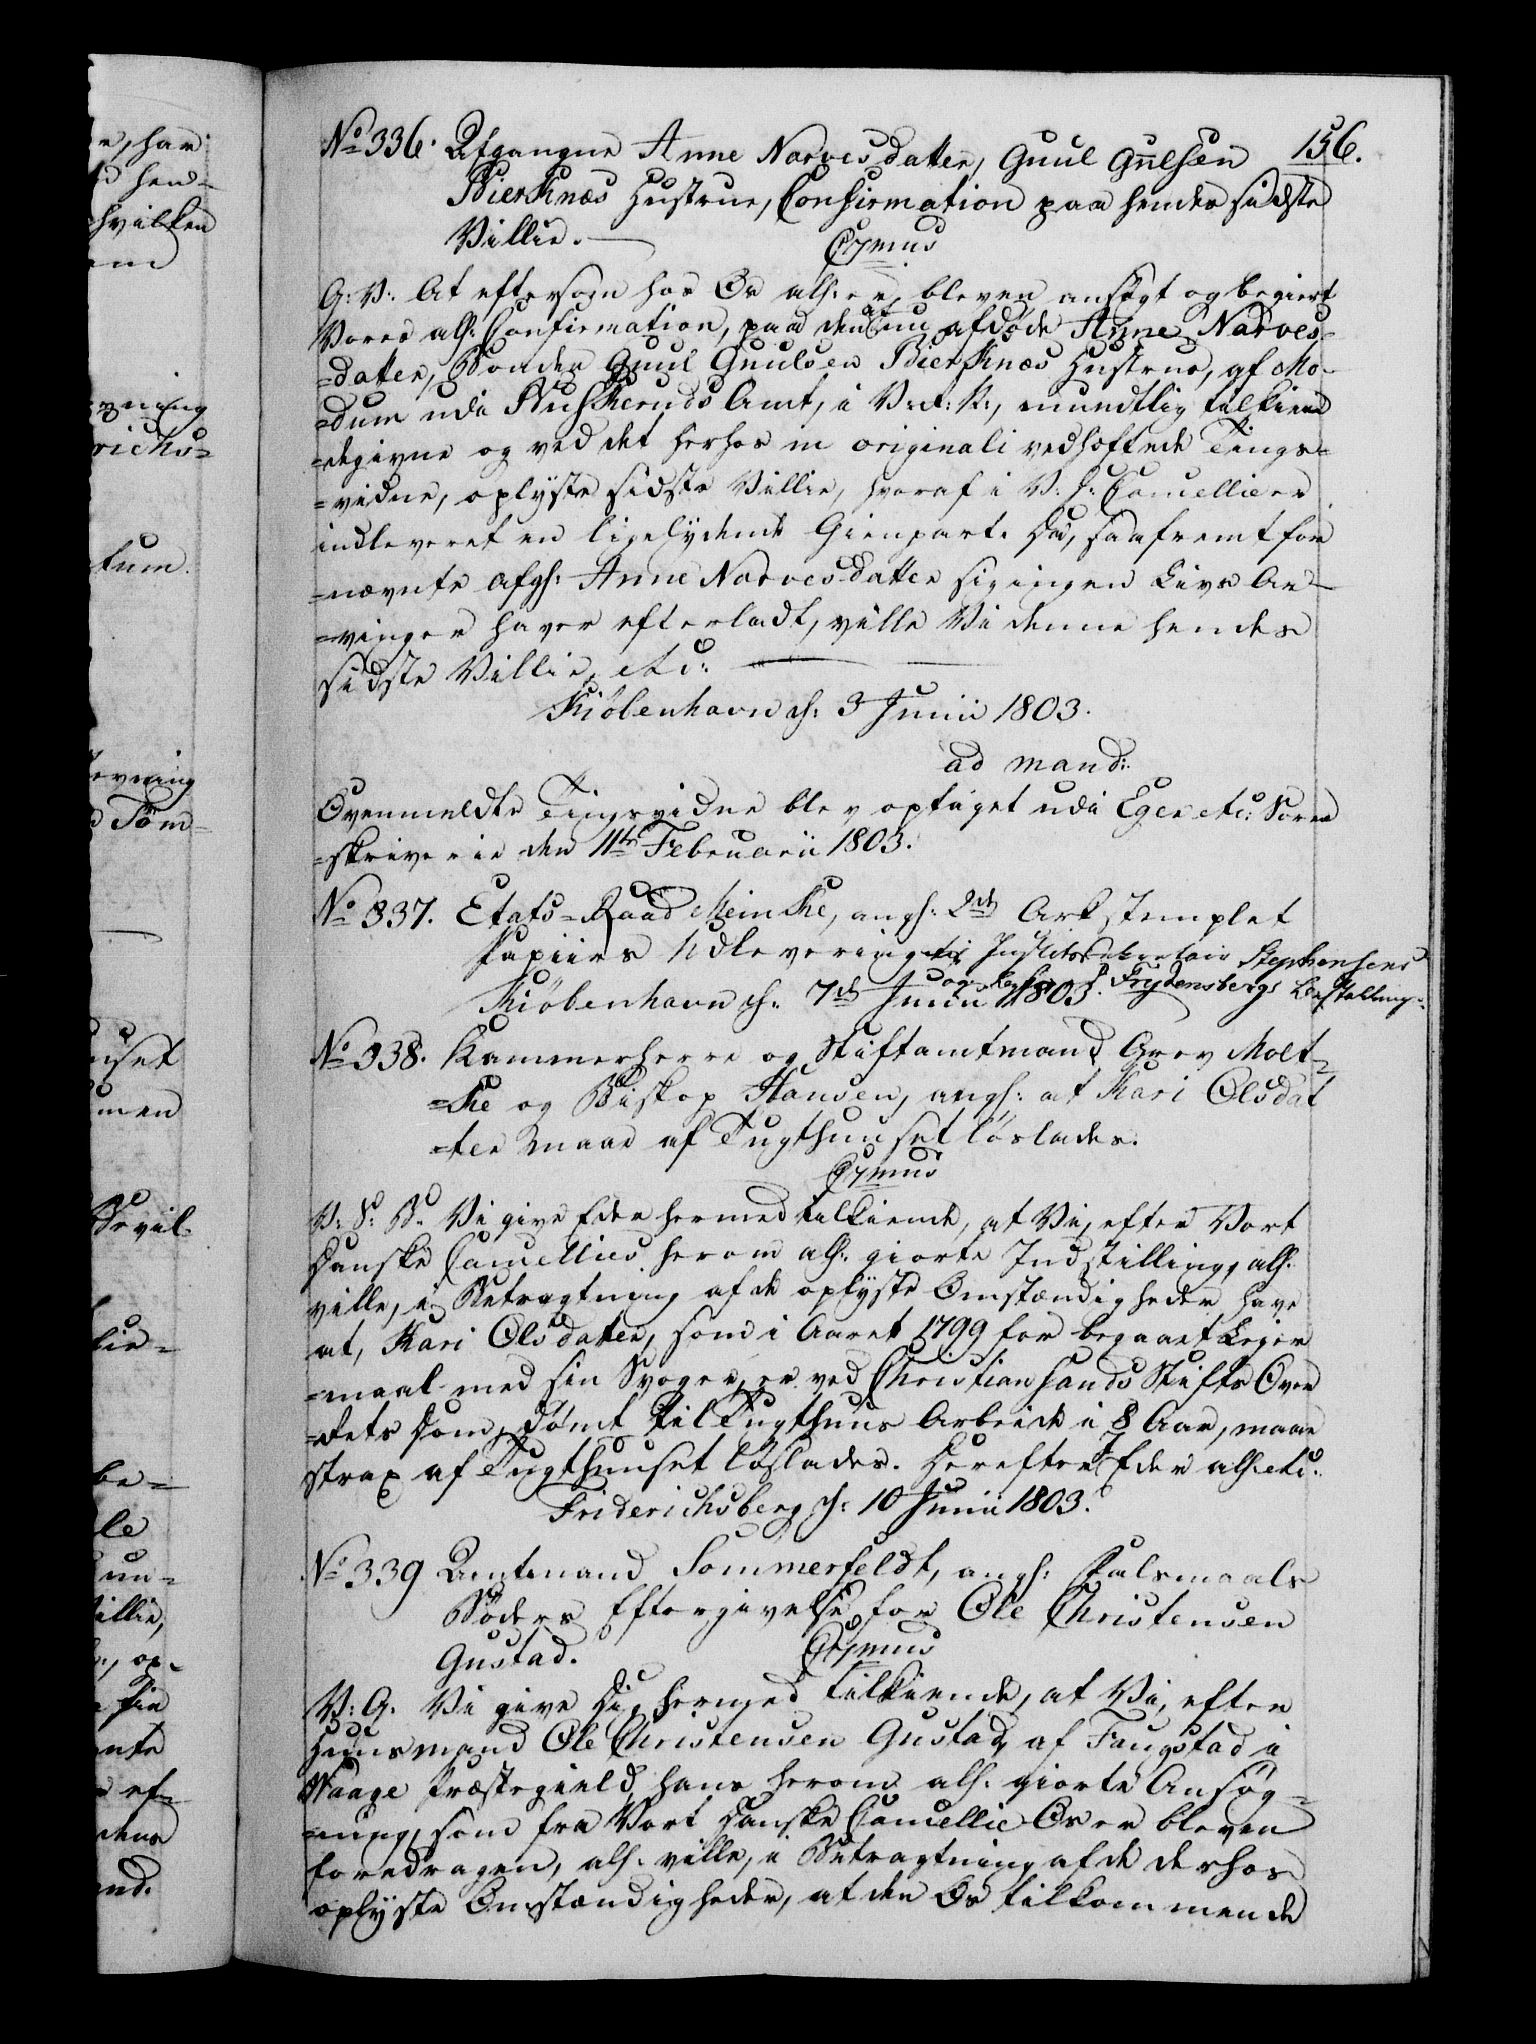 156.
No 336. Afgangne Anne Narvesdatter, Guul Gulsen
Bierknæs Hustrue, Confirmation paa hendes sidste
Villie.
C7mus
G: V: At eftersom hos Os alh: er bleven ansøgt og begiert
Vores alh: Confirmation, paa den af nu afdøde Anne Narves-
=datter, Bonden Guul Guulsen Bierknæs Hustrue, af Mo-
=dum udi Buskeruds Amt, i V: R: N:, mundtlig tilkiende
=degivne og ved det herhos in originali vedhæftede Tings-
=vidne, oplyste sidste Villie, hvoraf i V: D: Cancellie er
indleveret en ligelydende Gienpart. Da, saafremt for
=nævnte afgh: Anne Narvesdatter sig ingen Livs Ar-
=vinger haver efterladt, ville Vi denne hendes
sidste Villie, etc:
Kiøbenhavn d: 3 Junii 1803.
ad mand:
Ovenmeldte Tingsvidne blev optaget udi Eger etc: Soren
=skriverie den 11te Februarii 1803.
No 337. Etats=Raad Meincke, angh: 2de Ark stemplet
Papiirs Udlevering til Justits Stephensens
og Frydensbergs Bestalling.
Kiøbenhavn d: 7de Junii 1803.
No 338. Kammerherre og Stiftamtmand Grev Molt-
=ke og Biskop Hansen, angh: at Kari Olsdat
=ter maae af Tugthuuset løslades.
C7mus
V: S: B. Vi give Eder hermed tilkiende, at Vi, efter Vort
Danske Cancellies herom alh: giorte Indstilling, alh:
ville, i Betragtning af de oplyste Omstændigheder, have
at, Kari Olsdatter, som i Aaret 1799 for begaaet Leier
=maal med sin Svoger, er ved Christiansands Stifts Over
=rets Dom, dømt til Tugthuus Arbeide i 8 Aar, maae
strax af Tugthuuset løslades. Derefter Eder alh: etc:
Friderichsberg d: 10 Junii 1803.
No 339 Amtmand Sommerfeldt, angh: Falsmaals
Bøders Eftergivelse for Ole Christensen
Gustad.
C7mus
V: G. Vi give Dig hermed tilkiende, at Vi, efter
Huusmand Ole Christensen Gustad, af Faugstad i
Waage Præstegield, hans herom alh: giorte Ansøg-
=ning, som fra Vort Danske Cancellie Os er bleven
foredragen, alh: ville, i Betragtning af de derhos
oplyste Omstændigheder, at den Os tilkommende